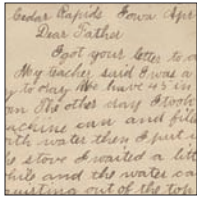 Cedar Rapids Iowa Apr
Dear Father
I got your letter to d
My teacher said I was a
to day We have 45 in
The other day I took
can and fille
with water then I put i
stove I waited a litt
and the water ca
out of the top